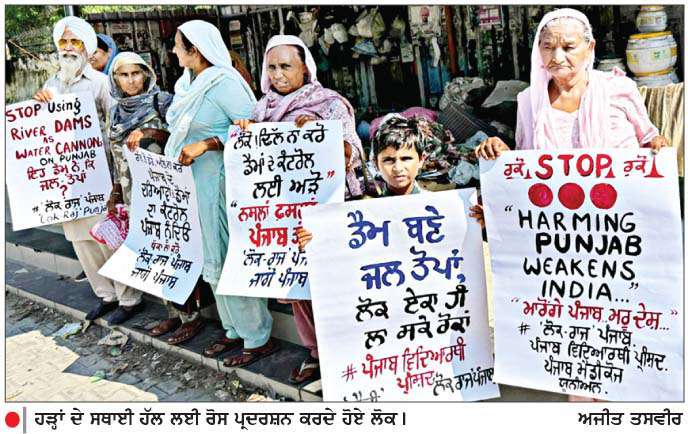 STOP Using
RIVER DAMS
AS
WATER CANNONS
ON PUNJAB
ਇਹ ਡੈਮ ਨੇ ਕਿ
ਜਲ-ਤੋਪਾਂ
?
# 'ਲੋਕ ਰਾਜ' ਪੰਜਾਬ
Lok Raj Punjab
ਦਰਿਆਵਾਂ-ਡੈਮਾਂ
ਦਾ ਕੰਟਰੋਲ
ਪੰਜਾਬ ਨੂੰ ਦਿਓ
ਲੋਕ-ਰਾਜ ਪੰਜਾਬ
ਜਾਗੋ ਪੰਜਾਬ
"ਲੋਕੋ! ਢਿੱਲ ਨਾ ਕਰੋ
ਡੈਮਾਂ ਦੇ ਕੰਟਰੋਲ
ਲਈ ਅੜੋ"
ਨਸਲਾਂ ਫਸਲਾਂ
ਪੰਜਾਬ
ਲੋਕ-ਰਾਜ ਪੰਜਾਬ
ਜਾਗੋ ਪੰਜਾਬ
ਡੈਮ ਬਣੇ
ਜਲ ਤੋਪਾਂ,
ਲੋਕ ਏਕਾ ਹੀ
ਲਾ ਸਕੇ ਰੋਕਾਂ
# ਪੰਜਾਬ ਵਿਦਿਆਰਥੀ
ਪ੍ਰੀਸ਼ਦ
ਲੋਕਰਾਜ ਪੰਜਾਬ
ਰੁਕੋ STOP ਰੁਕੋ
"HARMING
PUNJAB
WEAKENS
INDIA..."
# 'ਲੋਕ-ਰਾਜ' ਪੰਜਾਬ.
ਪੰਜਾਬ ਵਿਦਿਆਰਥੀ ਪ੍ਰੀਸ਼ਦ.
ਯੂਨੀਅਨ.
ਹੜ੍ਹਾਂ ਦੇ ਸਥਾਈ ਹੱਲ ਲਈ ਰੋਸ ਪ੍ਰਦਰਸ਼ਨ ਕਰਦੇ ਹੋਏ ਲੋਕ। ਅਜੀਤ ਤਸਵੀਰ